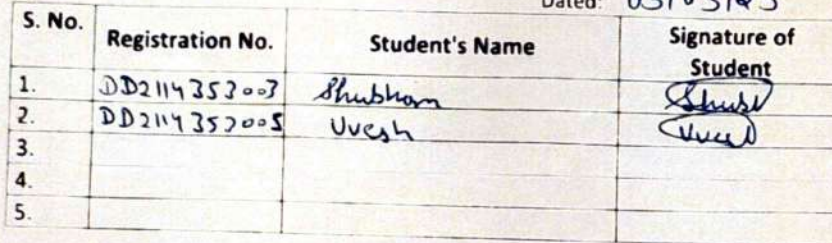 Dated: 03/03/23
S. No. Registration No. Student's Name Signature of Student
1. DD2114353003 Shubham Shubh
2. DD2114353005 Uvesh
3.
4.
5.